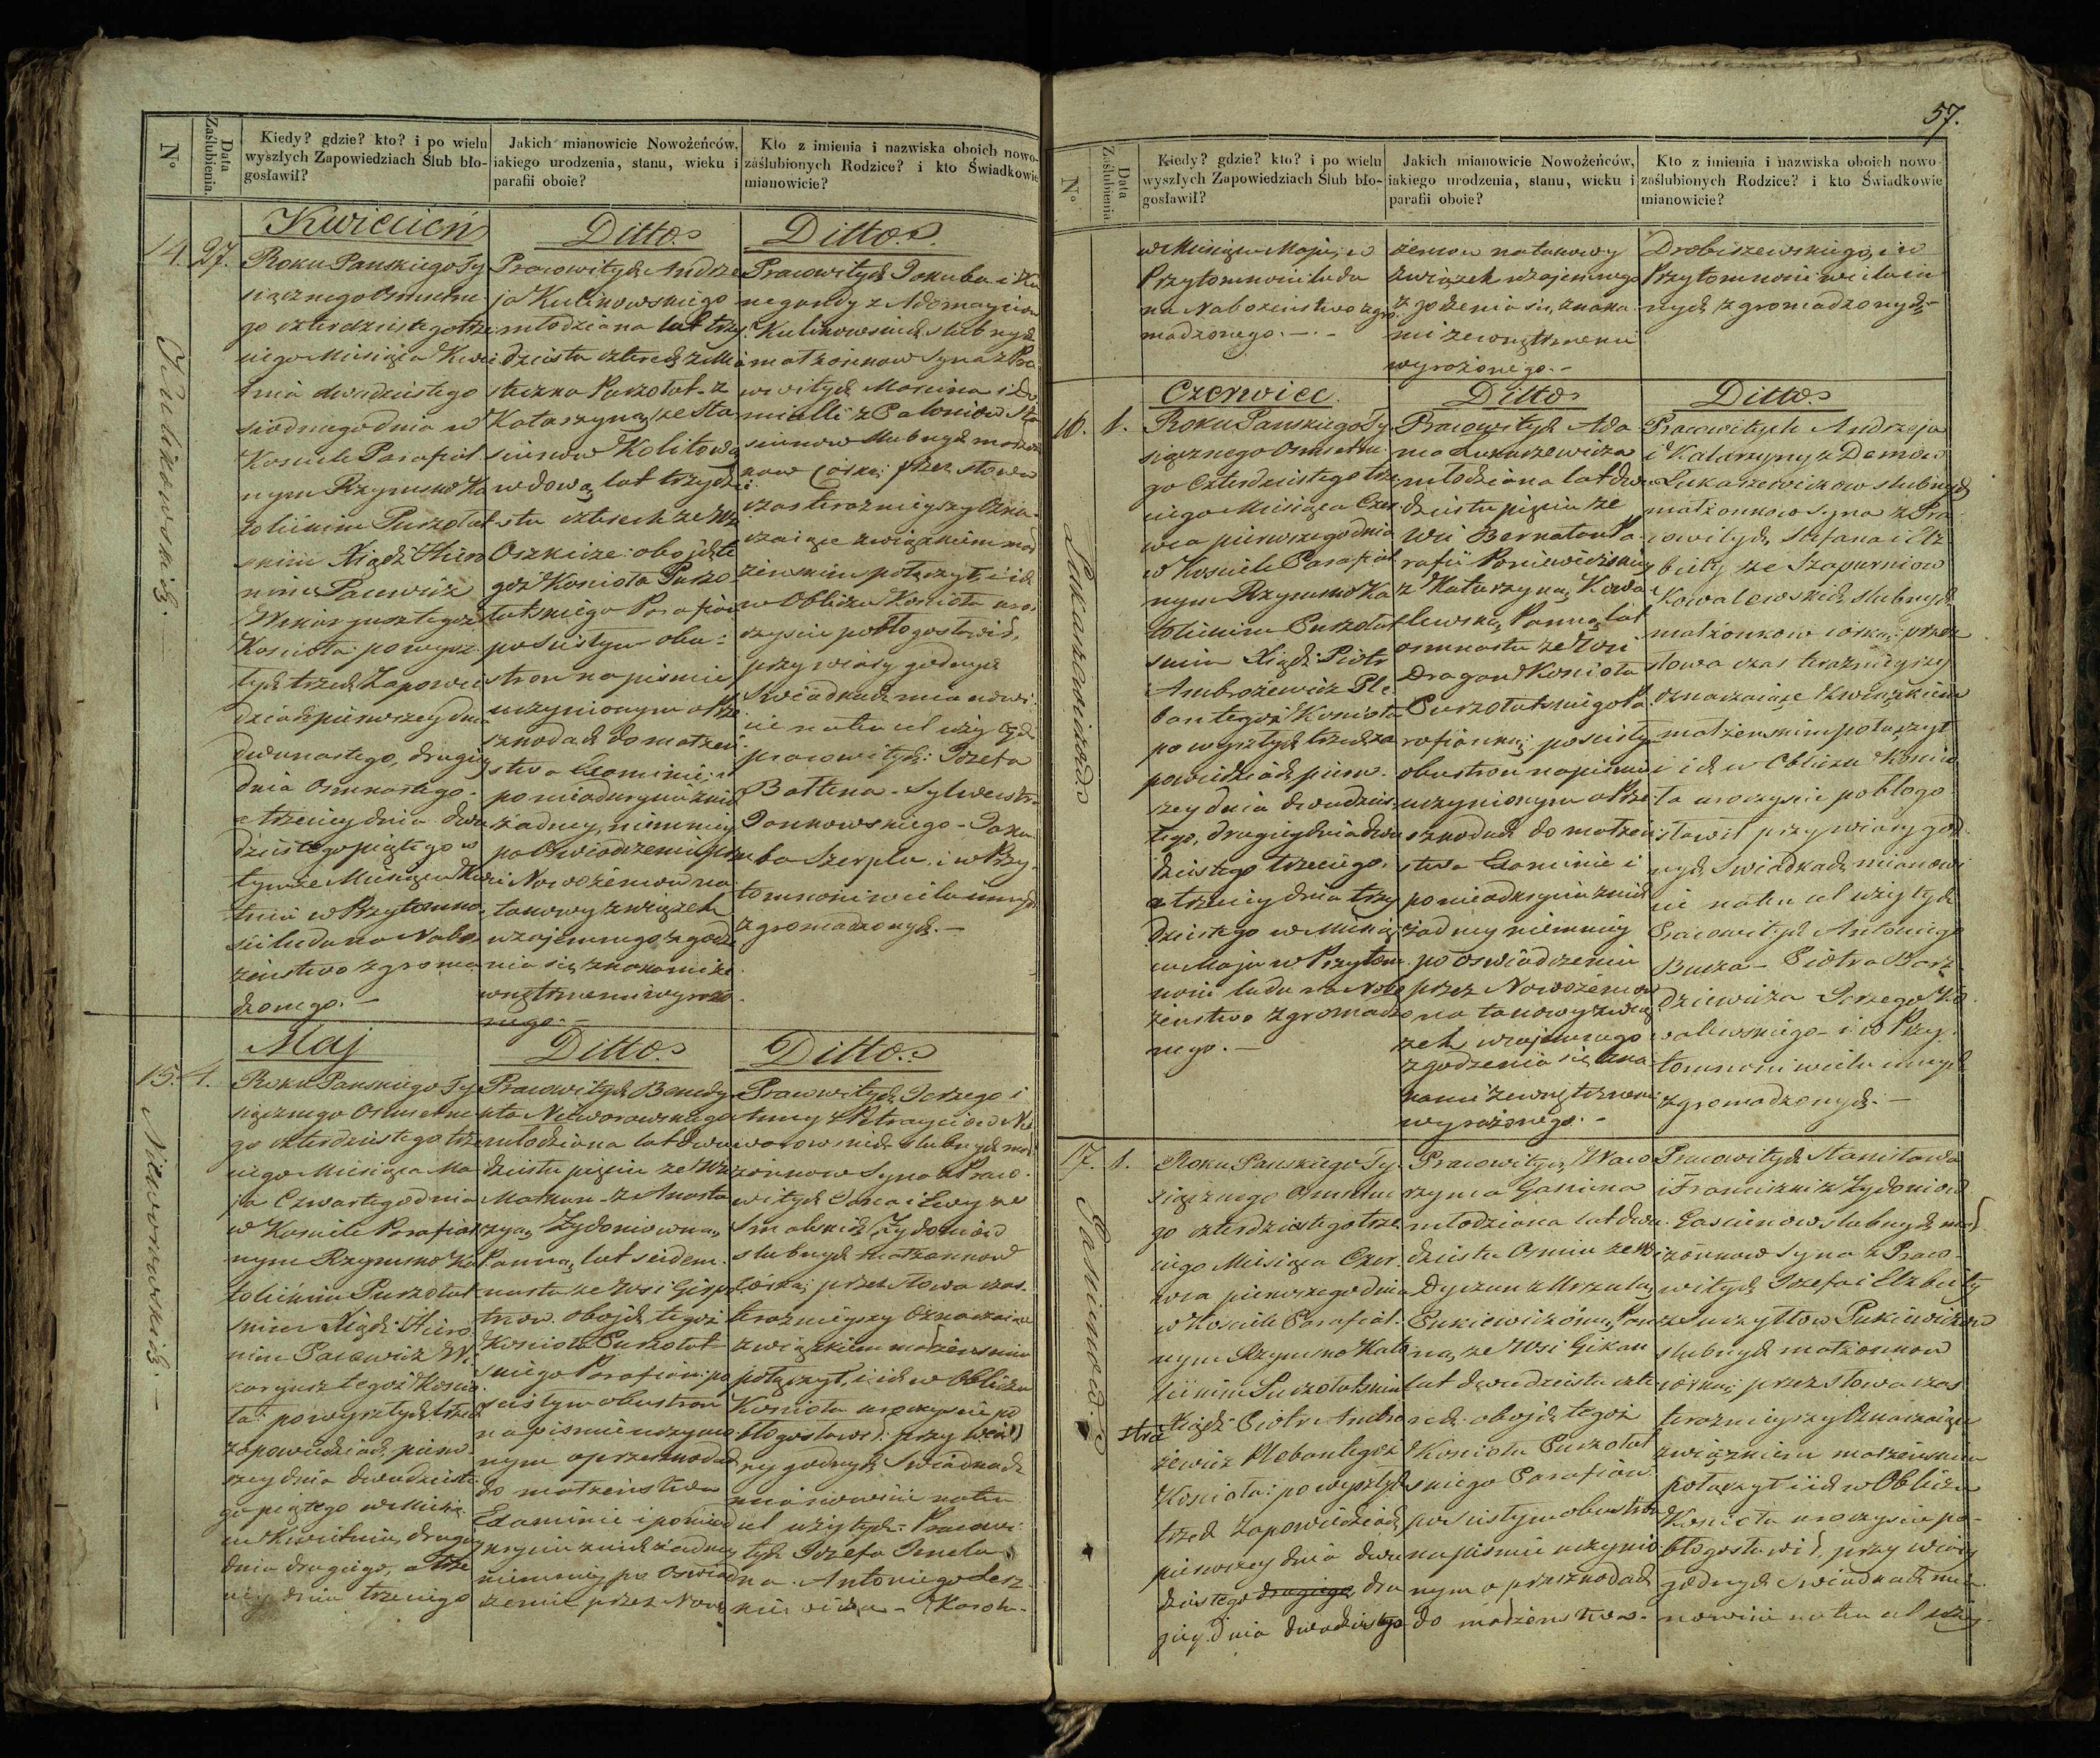 57.
No
Data Zaślubienia.
Kiedy? gdzie? kto? i po wielu
wyszłych Zapowiedziach Ślub bło-
gosławił?
Jakich mianowicie Nowożeńców,
iakiego urodzenia, stanu, wieku i
parafii oboie?
Kto z imienia i nazwiska oboich nowo-
zaślubionych Rodzice? i kto Świadkowie
mianowicie?
14. 27.
Kulikowskich.
Kwiecień
Roku Panskiego Ty
siącznego Osmsetne
go czterdziestego trze
ciego Miesiąca Kwie
tnia dwudziestego
siodmego dnia w
Kosciele Parafial
nym Rzymsko Ka
tolickim Puszołat
skim Xiądz Hiero
nim Pacewicz
Wikaryusz tegoż
Koscioła po wysz
łych trzech Zapowie
dziach pierwszey dnia
dwunastego, drugiey
dnia Osmnastego
a trzeciey dnia dwu
dziestego piątego w
tymże Miesiącu Kwie
tniu w Przytomno
sci ludu na Nabo
żeństwo zgroma
dzonego. —
Ditto.
Pracowitych Andrze
ja Kulikowskiego
młodziana lat trzy
dziestu czterech z Mia
steczka Puszołat z
Katarzyną ze Sta
siunow Kolitową
wdową lat trzydzie
stu czterech ze Wsi
Oszkicze oboich te
goż Koscioła Puszo
łatskiego Parafian
po scisłym obu
stron na pismie
uczynionym o Prze
szkodach do małżeń
stwa Examinie, i
po nieodkryciu znich
żadney, niemniey
po Oswiadczeniu prze
z Nowożeńcow na
takowy związek
wzajemnego zgodze
nia się znakami ze
wnętrznemi wyrażo
nego. —
Ditto.
Pracowitych Jakuba i Ku
negundy z Adomayciow
Kulikowskich slubnych
małżonkow Syna z Pra
cowitych Marcina i Do
micelli z Paloniow Sta
siunow slubnych małżon
kow Corką przez słowa
czas teraznieyszy Ozna
czaiące związkiem mał
żenskim połączył, i ich
w Obliczu Koscioła uro
czyscie pobłogosławił,
przy wiary godnych
Swiadkach mianowi
cie na ten cel użytych
pracowitych: Jozefa
Battena - Sylwestra
Jankowskiego - Jaku
ba Szerpla i w Przy
tomnosci wielu innych
zgromadzonych. —
15. 4.
Nieworowskich. —
Maj
Roku Panskiego Ty
siącznego Osmsetne
go czterdziestego trze
ciego Miesiąca Ma
ja Czwartego dnia
w Kosciele Parafial
nym Rzymsko Ka
tolickim Puszołat
skim Xiądz Hiero
nim Pacewicz Wi
karyusz tegoż Koscio
ła po wyszłych trzech
zapowiedziach pierw
szey dnia dwudzieste
go piątego w Miesią
cu Kwietniu, drugiey
dnia drugiego, a trze
ciey dnia trzeciego
Ditto.
Pracowitych Benedy
kta Niworowskiego
młodziana lat dwu
dziestu pięciu ze Wsi
Matkun z Anasta
zyą Żydoniowną
Panną lat siedm
nastu ze Wsi Girs
trow oboich tegoż
Koscioła Puszołat
skiego Parafian po
scisłym obustron
na pismie uczynio
nym o przeszkodach
do małżeństwa
Examinie i po nieod
kryciu znich żadney
niemniey po Oswiad
czeniu przez Nowo
Ditto.
Pracowitych Jerzego i
Anny z Petrayciow Ni
worowskich slubnych mał
żonkow Syna z Praco
witych Jana i Ewy ze
Smalskich Żydoniow
slubnych małżonkow
Corką przez słowa czas
teraznieyszy Oznaczaiące
związkiem małżenskim
połączył, i ich w Obliczu
Koscioła uroczyscie po
błogosławił przy wia
ry godnych Swiadkach
mianowicie na ten
cel użytych Pracowi
tych Jozefa Jmela
na - Antoniego Lesz
kiewicza - Karola
No
Data Zaślubienia.
Kiedy? gdzie? kto? i po wielu
wyszłych Zapowiedziach Ślub bło-
gosławił?
Jakich mianowicie Nowożeńców,
iakiego urodzenia, stanu, wieku i
parafii oboie?
Kto z imienia i nazwiska oboich nowo
zaślubionych Rodzice? i kto Świadkowie
mianowicie?
w Miesiącu Maju, w
Przytomnosci ludu
na Nabożeństwo zgro
madzonego. —
żencow na takowy
związek wzajemnego
zgodzenia się, znaka
mi zewnętrznemi
wyrażonego. —
Drobiszewskiego, i w
Przytomnosci wielu in
nych zgromadzonych —
16. 1.
Łukaszewiczow
Czerwiec.
Roku Panskiego Ty
siącznego Osmsetne
go Czterdziestego trze
ciego Miesiąca Czer
wca pierwszego dnia
w Kosciele Parafial
nym Rzymsko Ka
tolickim Puszołat
skim Xiądz Piotr
Ambrożewicz Ple
ban tegoż Koscioła
po wyszłych trzech za
powiedziach pierw
szey dnia dwudzies
tego, drugiey dnia dwu
dziestego trzeciego,
a trzeciey dnia trzy
dziestego w Miesią
cu Maju w Przytom
nosci ludu na Nabo
żenstwo zgromadzo
nego. —
Ditto
Pracowitych Ada
ma Łukaszewicza
młodziana lat dwu
dziestu pięciu ze
Wsi Bernatow Pa
rafii Poniewiezskiey
z Katarzyną Kowa
lewską Panną lat
osmnastu ze Wsi
Dragan Koscioła
Puszołatskiego Pa
rafianką po scisłym
obustron na pismie
uczynionym o Prze
szkodach do małżeń
stwa Examinie i
po nieodkryciu znich
żadney niemniey
po oswiadczeniu
przez Nowożencow
na takowy zwią
zek wzajemnego
zgodzenia się zna
kami zewnętrznemi
wyrażonego. —
Ditto.
Pracowitych Andrzeja
i Katarzyny z Demow
Łukaszewiczow slubnych
małżonkow Syna z Pra
cowitych Stefana i Elż
biety ze Szapurniow
Kowalewskich slubnych
małżonkow corką przez
słowa czas teraznieyszy
Oznaczaiące związkiem
małżenskim połączył
i ich w Obliczu Koscio
ła uroczyscie pobłogo
sławił przy wiary god
nych Swiadkach mianowi
cie na ten cel użytych
Pracowitych Antoniego
Bucza - Piotra Barz
dziewicza Jerzego Ko
walewskiego - i w Przy
tomnosci wielu innych
zgromadzonych. —
17. 1.
Gasiunow
Roku Panskiego Ty
siącznego Osmsetne
go czterdziestego trze
ciego Miesiąca Czer
wca pierwszego dnia
w Kosciele Parafial
nym Rzymsko Kato
lickim Puszołatskim
Xiądz Piotr Ambro
żewicz Pleban tegoż
Koscioła: po wyszłych
trzech Zapowiedziach
pierwszey dnia dwu
dziestego drugiego, dru
giey dnia dwudziestego
Pracowitych Waw
rzyna Gasiuna
młodziana lat dwu
dziestu Osmiu ze Wsi
Dyczun z Urszulą
Pukiewiczowną Pan
ną, ze Wsi Gikan
lat dwudziestu czte
rech oboich tegoż
Koscioła Puszołat
skiego Parafian
po scisłym obustron
na pismie uczynio
nym o przeszkodach
do małżenstwa
Pracowitych Stanisława
i Franciszki z Żydoniow
Gasiunow slubnych mał
żonkow Syna z Praco
witych Jozefa i Elżbiety
z Puszyłłow Pukiewiczow
slubnych małżonkow
corką przez słowa czas
teraznieyszy Oznaczaiące
związkiem małżenskim
połączył i ich w Obliczu
Koscioła uroczyscie po
błogosławił, przy wiary
godnych Swiadkach mia
nowicie na ten cel uży